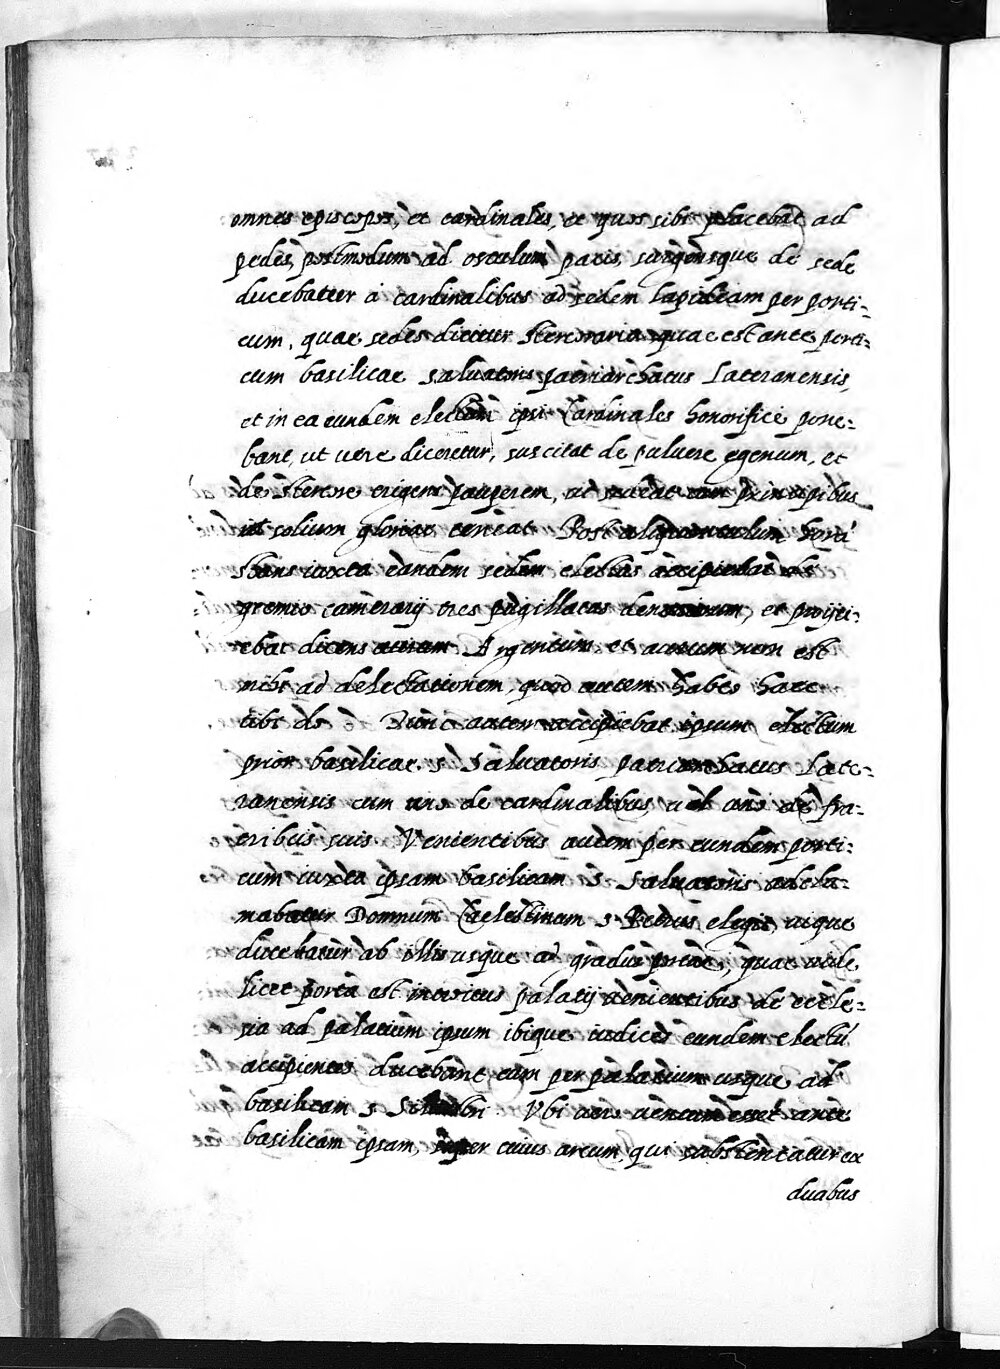 omnes episcopos, et cardinales, et quos sibi placebat ad
pedes, postmodum ad osculum pacis, surgensque de sede
ducebatur à cardinalibus ad sedem lapideam per porti=
cum, quae sedes dicitur stercoraria quae est ante porti=
cum basilicae saluatoris patriarchatus Lateranensis,
et in ea eundem electum ipsi Cardinales honorifice pone=
bant, ut vere diceretur, suscitat de puluere egenum, et
de stercore erigens pauperem, ut sedeat cum principibus
et solium gloriae teneat Post aliquantulum horae
stans iuxta eandem sedem electus accipiebat de
gremio camerarij tres pugillatas denariorum, et proijci=
ebat dicens Argentum et aurum non est
mihi ad delectationem, quod autem habeo hoc
tibi do Tunc autem accipiebat ipsum electum
prior basilicae s Saluatoris patriarchatus Late=
ranensis cum uno de cardinalibus, vel uno de fra=
tribus suis Venientibus autem per eundem porti=
cum iuxta ipsam basilicam s Saluatoris accla=
mabatur Domnum Caelestinum s Petrus elegit, atque
ducebatur ab illis usque ad gradus portae, quae vide
licet porta est introitus palatij venientibus de eccle=
sia ad palatium ipsum ibique iudices eundem electū
accipientes ducebant eum per palatium usque ad
basilicam s Siluestri Vbi vero ventum esset ante
basilicam ipsam, super cuius arcum, qui substentatur ex
duabus